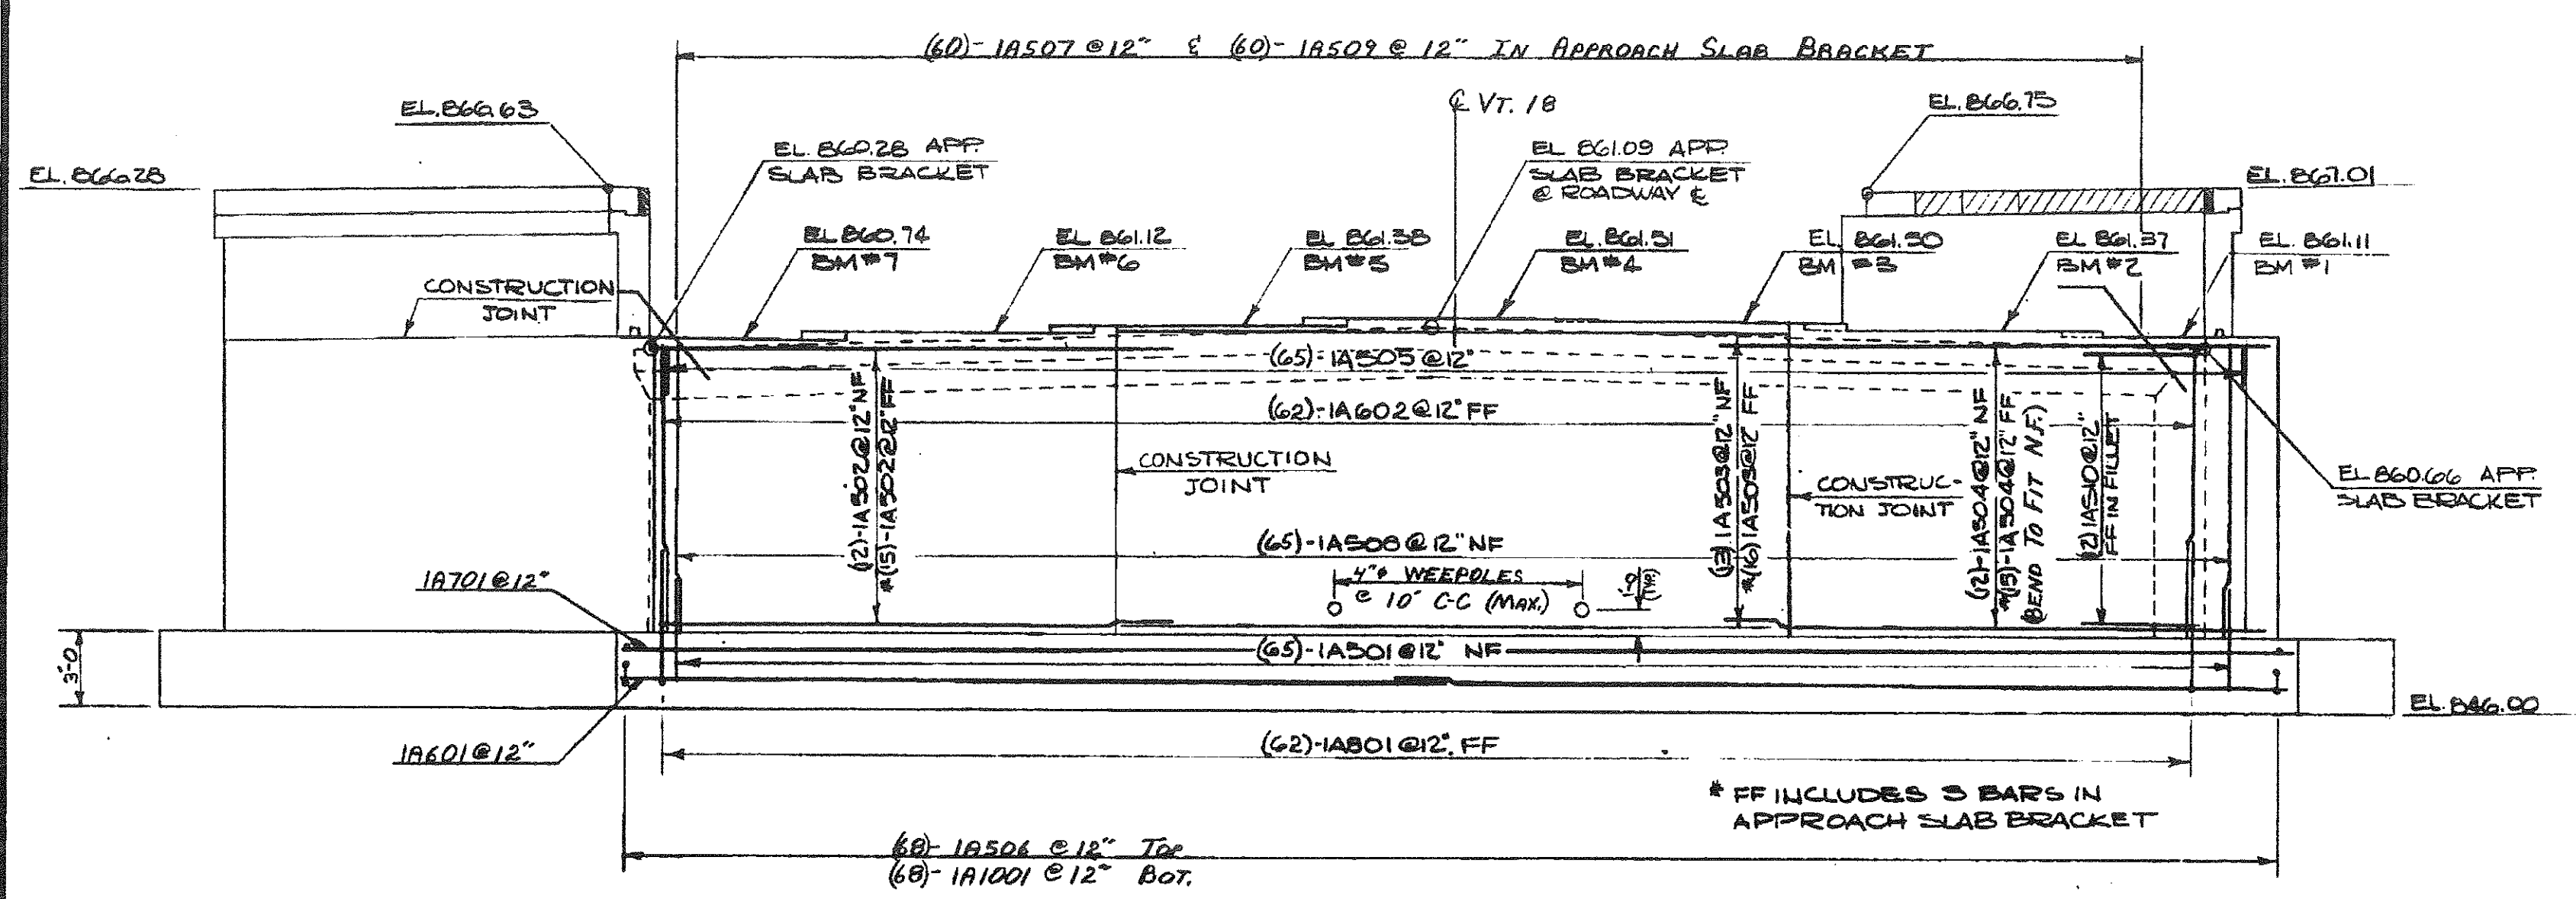 (60)-1A507 @ 12" & (60)-1A509 @ 12" IN APPROACH SLAB BRACKET
EL. 866.63
℄ VT. 18
EL. 866.75
EL. 866.28
EL. 860.28 APP.
SLAB BRACKET
EL 861.09 APP.
SLAB BRACKET
@ ROADWAY ℄
EL. 867.01
EL. 860.74
BM #7
EL 861.12
BM #6
EL 861.38
BM #5
EL. 861.51
BM #4
EL. 861.50
BM #3
EL 861.37
BM #2
EL. 861.11
BM #1
CONSTRUCTION
JOINT
(65)-1A505 @ 12"
(62)-1A602 @ 12" FF
(12)-1A502 @ 12" NF
*(15)-1A502 @ 12" FF
CONSTRUCTION
JOINT
(13) 1A503 @ 12" NF
*(16) 1A503 @ 12" FF
CONSTRUC-
TION JOINT
(12)-1A504 @ 12" NF
*(15)-1A504 @ 12" FF
(BEND TO FIT N.F.)
(2) 1A510 @ 12"
FF IN FILLET
EL 860.66 APP.
SLAB BRACKET
(65)-1A508 @ 12" NF
4"ø WEEPOLES
@ 10' C-C (MAX.)
(TYP.)
1A701 @ 12"
3'-0
(65)-1A501 @ 12" NF
EL. 846.00
1A601 @ 12"
(62)-1A801 @ 12" FF
* FF INCLUDES 3 BARS IN
APPROACH SLAB BRACKET
(68)- 1A506 @ 12" TOP
(68)- 1A1001 @ 12" BOT.